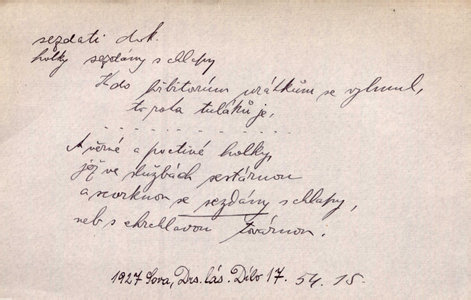 sezdati dok.
holky sezdány s chlapy
Kdo přibitorním vrátkům se vyhnul,
to rota tuláků je,
. . . . . . . . . . . . . .
A věrné a poctivé holky,
jež ve službách sestárnou
a scvrknou se sezdány s chlapy,
neb s chrchlavou továrnou.
1927 Sova, Drs. lás. Dílo 17. 54. 15.